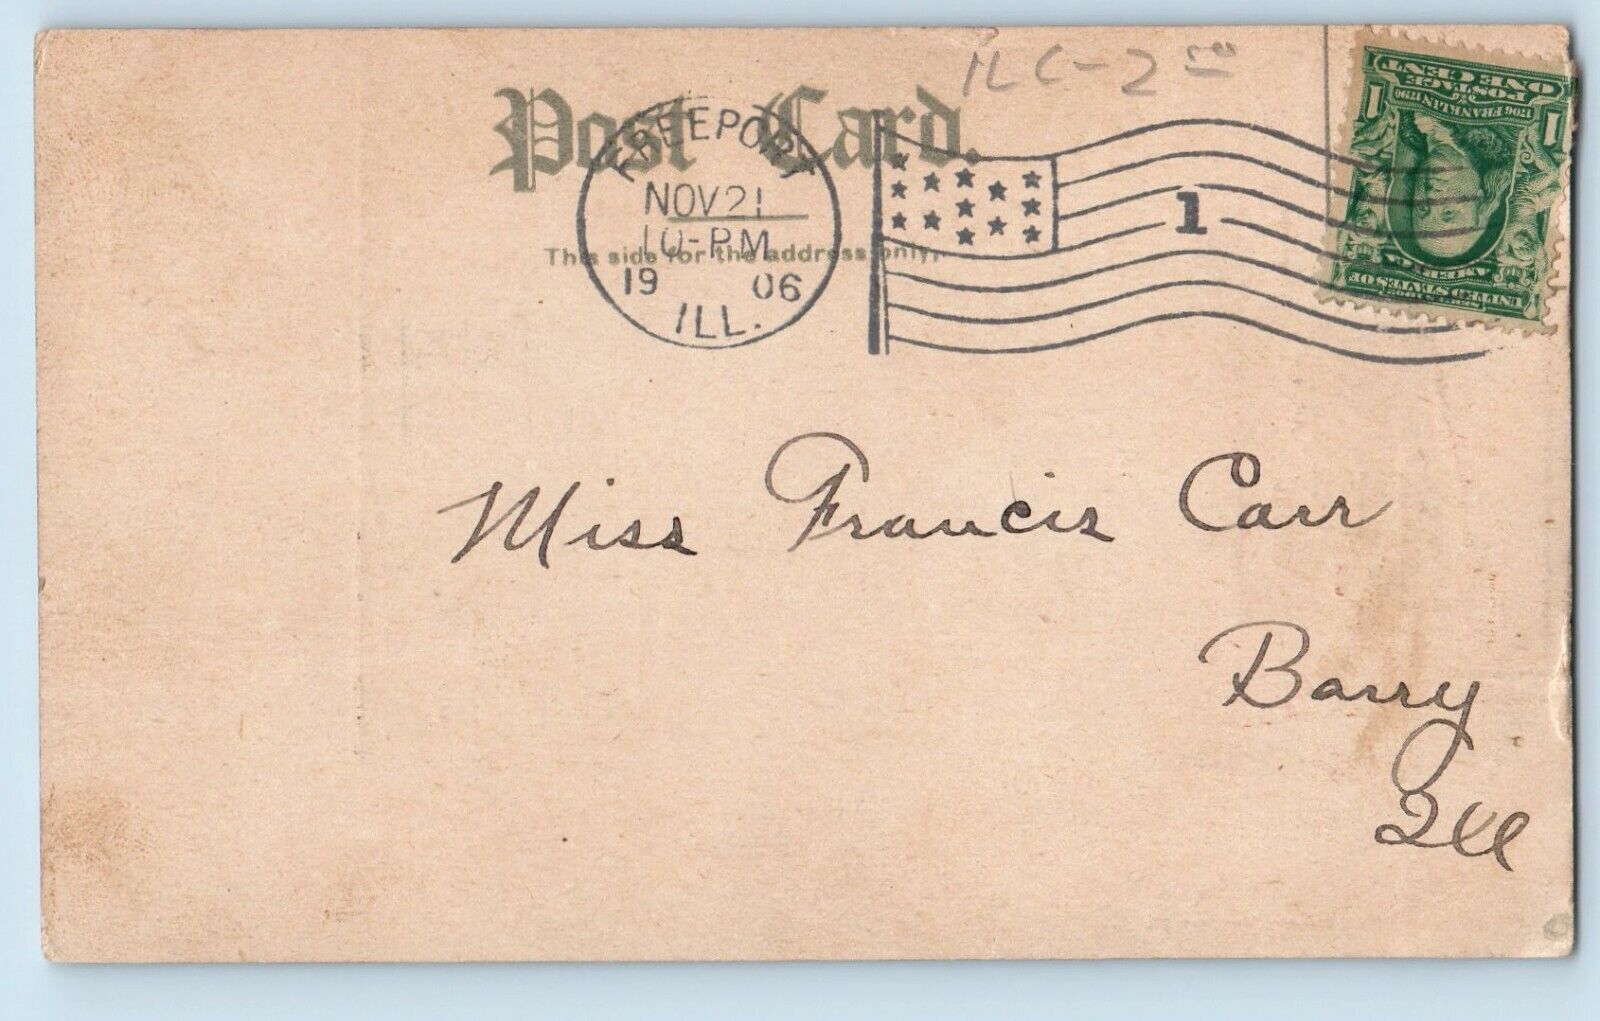 ILC-2 00
Post Card.
This side for the address only.
FREEPORT
NOV 21
10-PM
19 06
ILL.
1
1 1
ONE CENT
POSTAGE
1706 FRANKLIN 1790
SERIES 1902
UNITED STATES OF
AMERICA
Miss Francis Carr
Barry
Ill